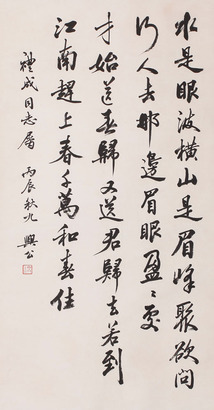 水是眼波横山是眉峰聚欲问
行人去那邊眉眼盈〻處
才始送春歸又送君歸去若到
江南趕上春千萬和春住
禮成同志屬
丙辰秋九 興公